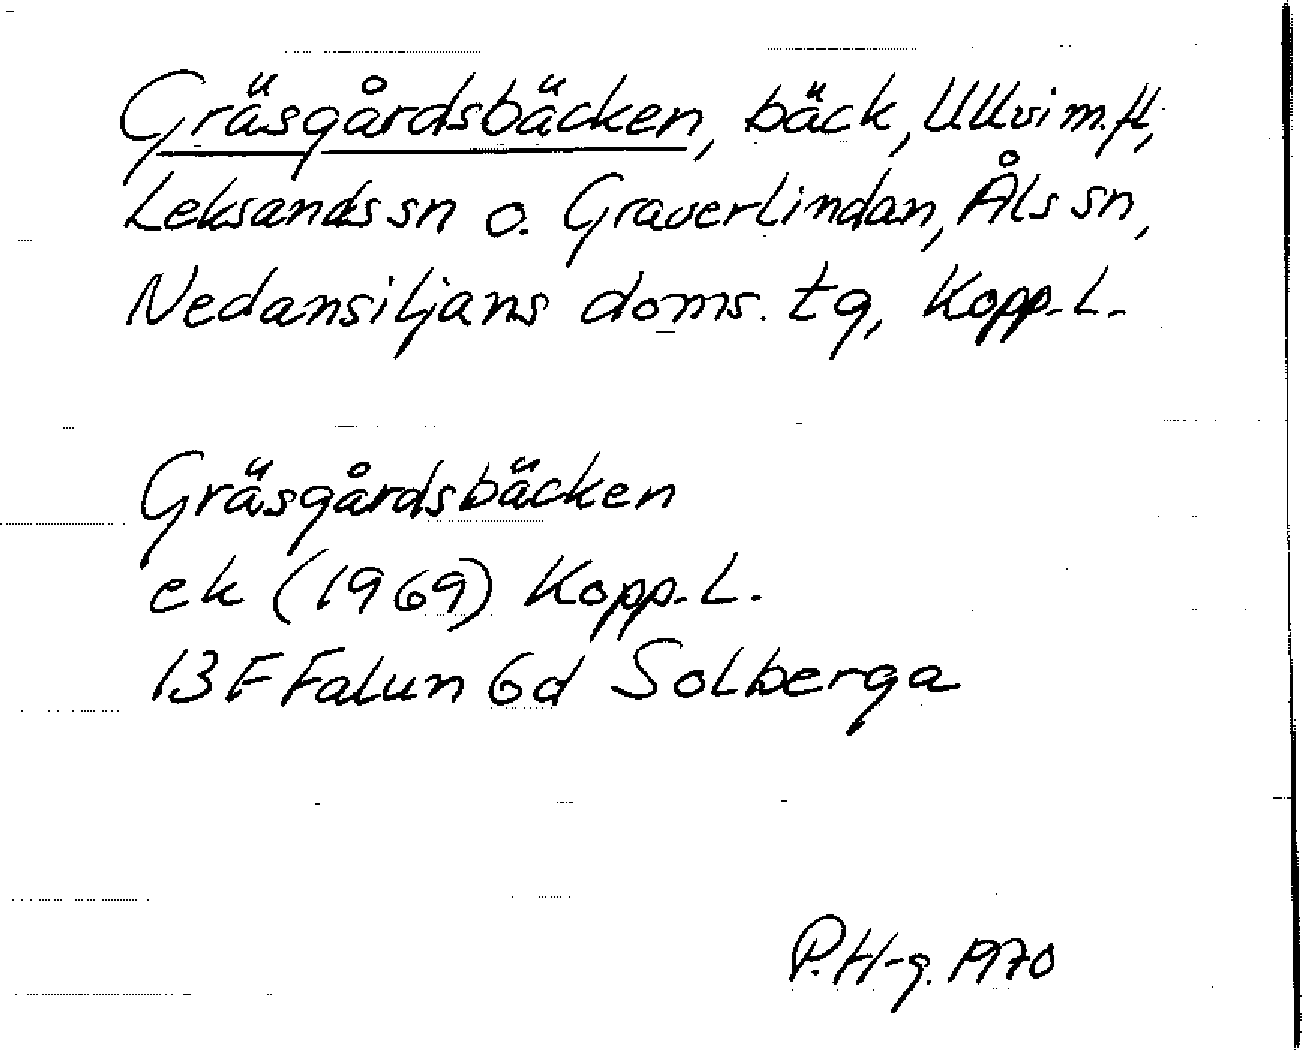 Gräsgårdsbäcken, bäck, Ullvi m.fl.,
Leksands sn o. Graverlindan, Åls sn,
Nedansiljans doms. tg, Kopp. l.
Gräsgårdsbäcken
ek (1969) Kopp. l.
13 F Falun 6d Solberga
P.H-g. 1970